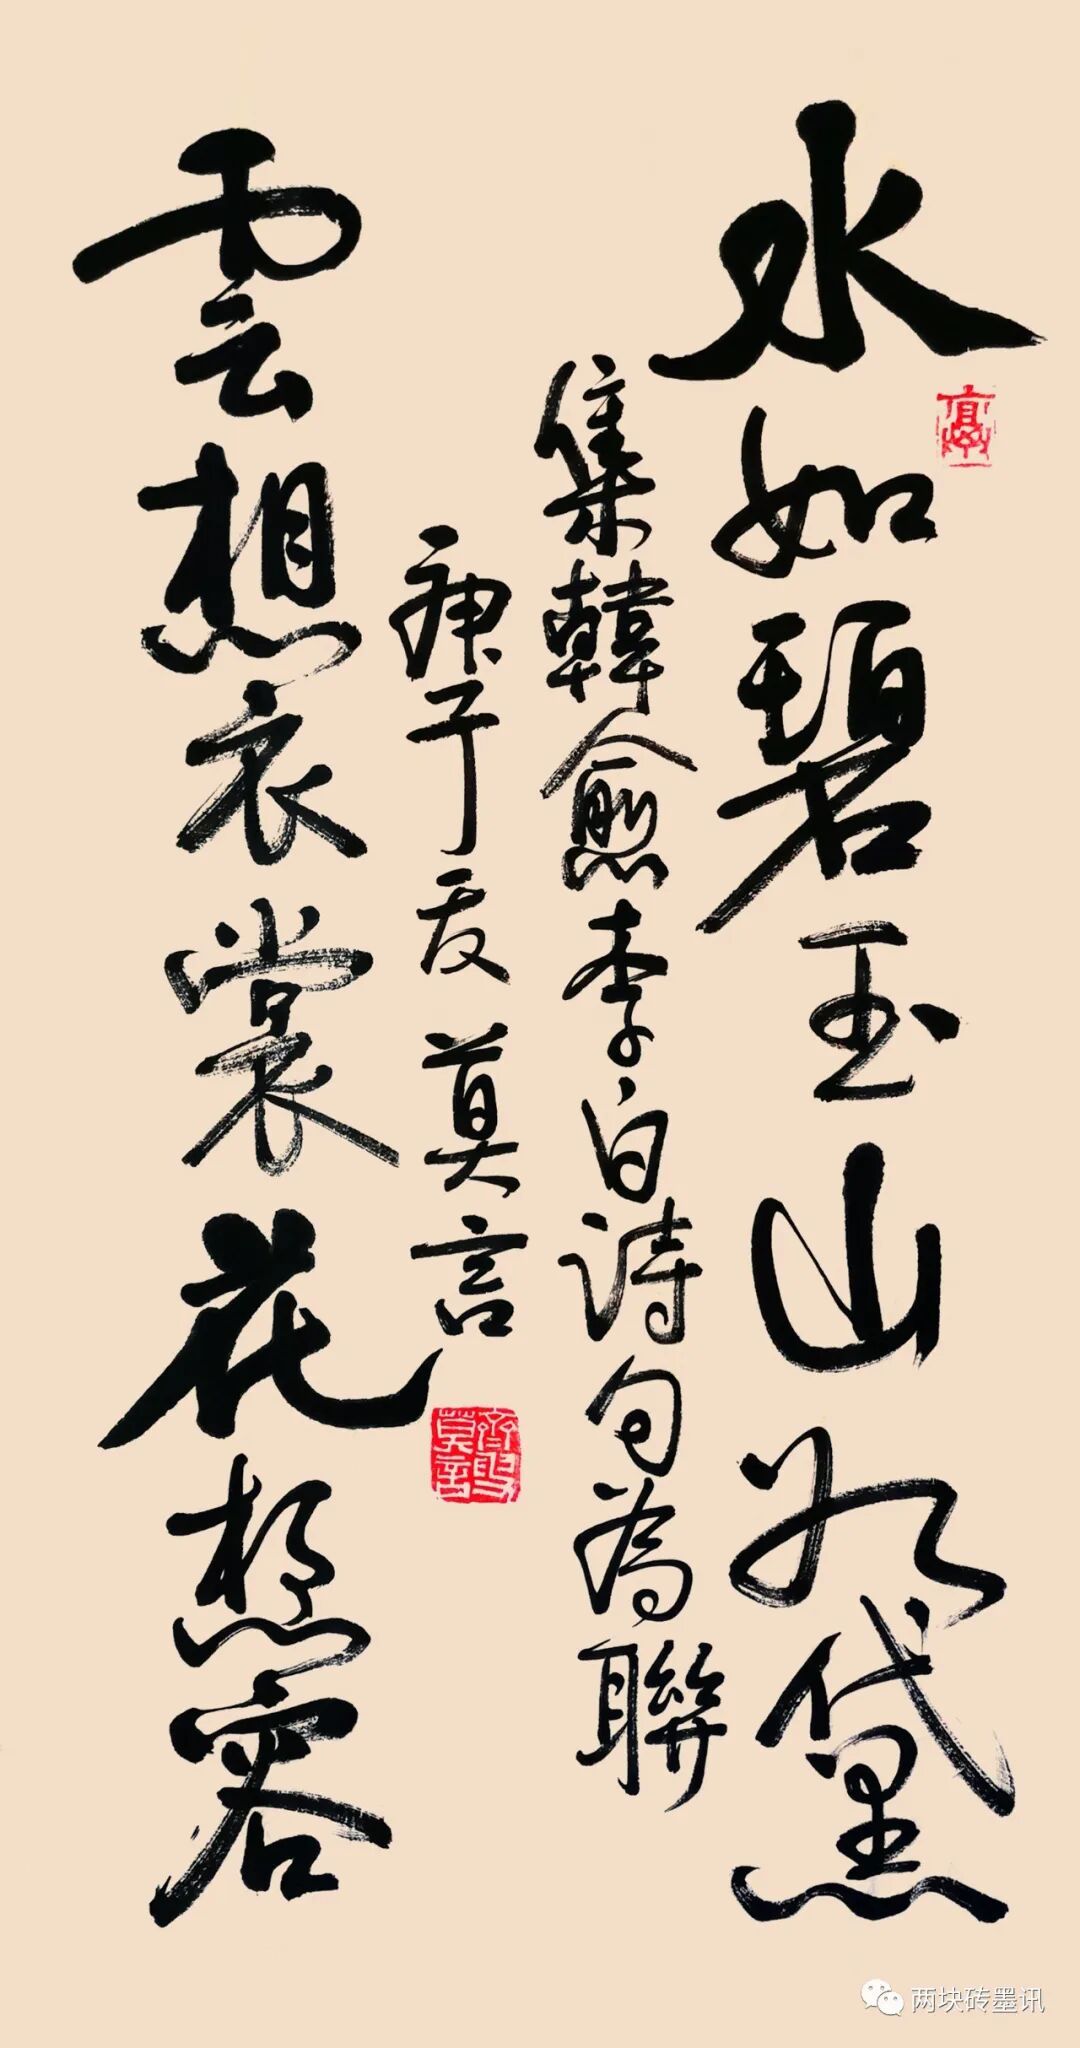 水如碧玉山如黛
集韓愈李白詩句為聯
庚子夏 莫言
雲想衣裳花想容
两块砖墨讯